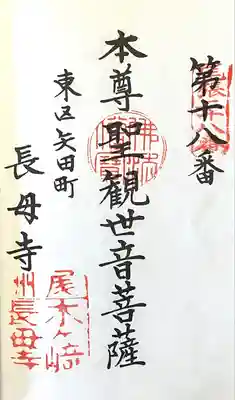 第十八番
本尊聖観世音菩薩
東区矢田町
長母寺
尾州木ヶ崎長母寺